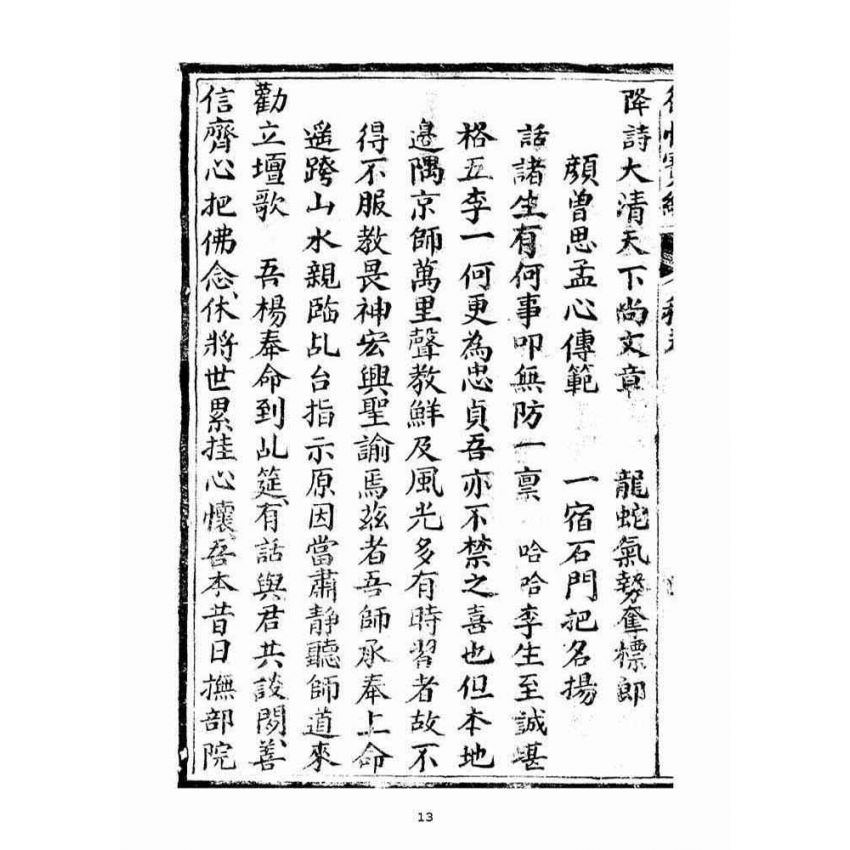 降詩大清天下尚文章　龍蛇氣勢奪標郎
顔曾思孟心傳範　一宿石門把名揚
話諸生有何事叩無防一禀　哈哈李生至誠堪
格五李一何更為忠貞吾亦不禁之喜也但本地
邊隅京師萬里聲教鮮及風光多有時習者故不
得不服教畏神宏興聖諭焉兹者吾師承奉上命
遥跨山水親臨乩台指示原因當肅静聽師道來
勸立壇歌　吾楊奉命到乩筵、有話與君共談閱、善
信齊心把佛念、休將世累挂心懷、吾本昔日撫部院
13